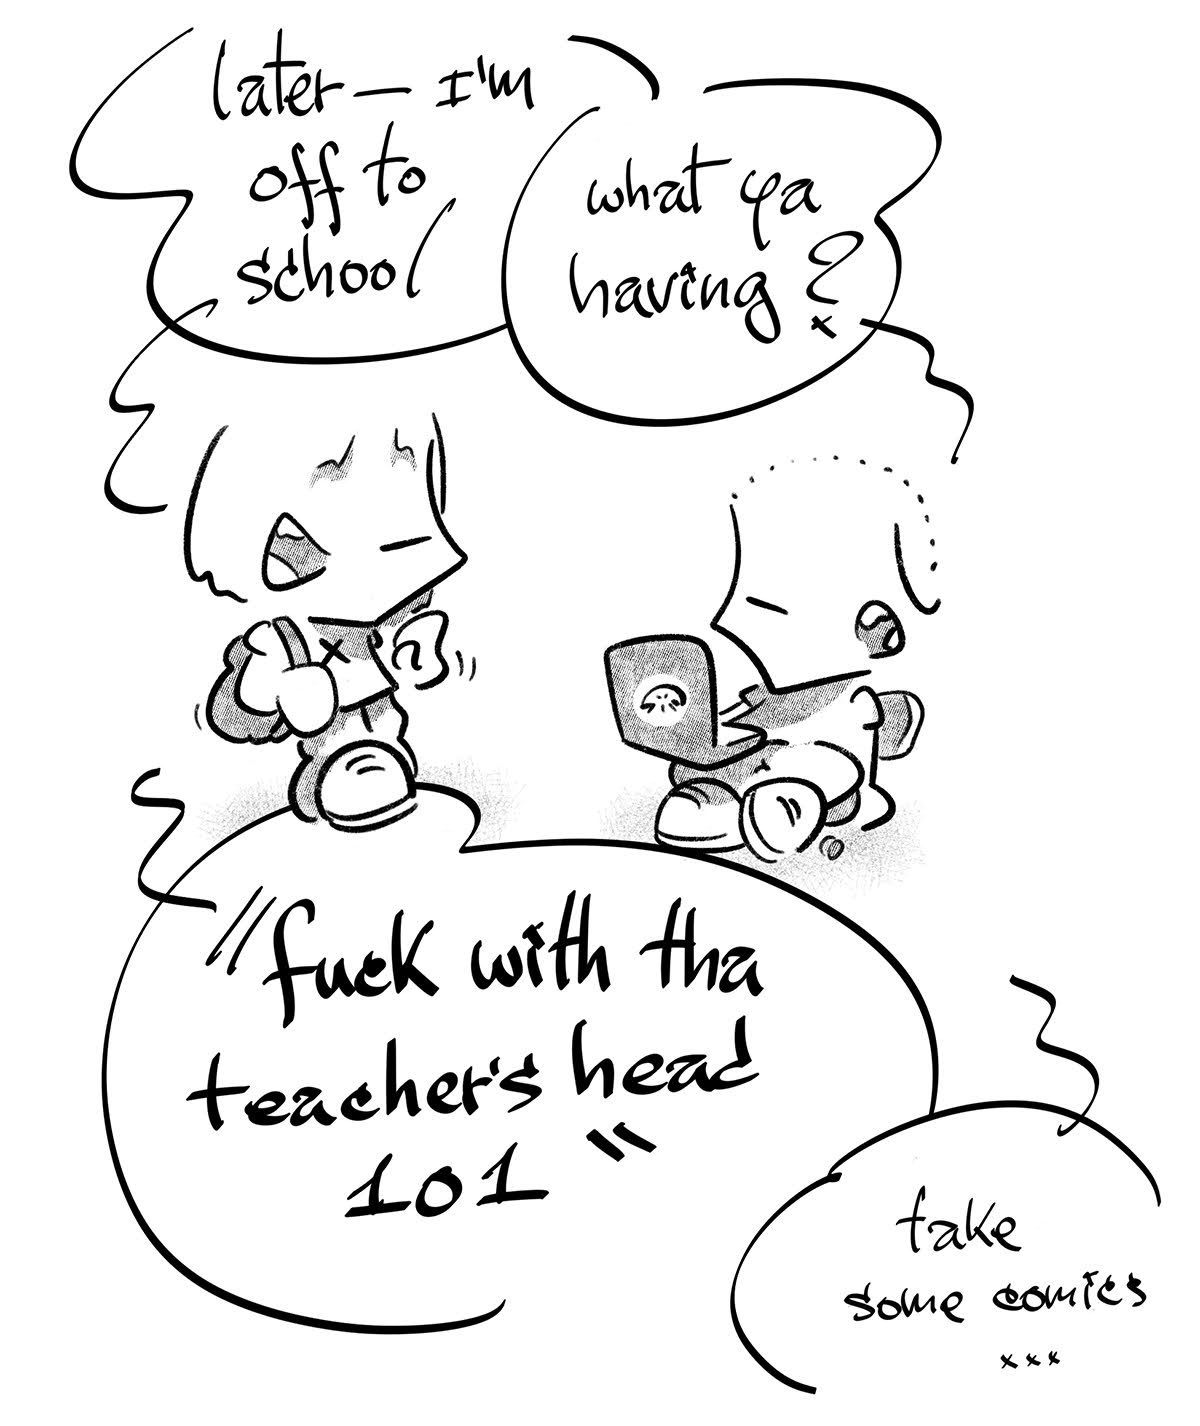 later— I'm
off to
school
what ya
having?
"fuck with tha
teacher's head
101"
take
some comics
...